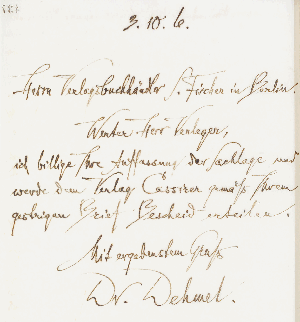 3.10.6.
Herrn Verlagsbuchhändler S. Fischer in Berlin.
Werter Herr Verleger,
ich billige Ihre Auffassung der Sachlage und
werde dem Verlag Cassirer gemäß Ihrem
gestrigen Brief Bescheid erteilen.
Mit ergebenstem Gruß
Dr. Dehmel.